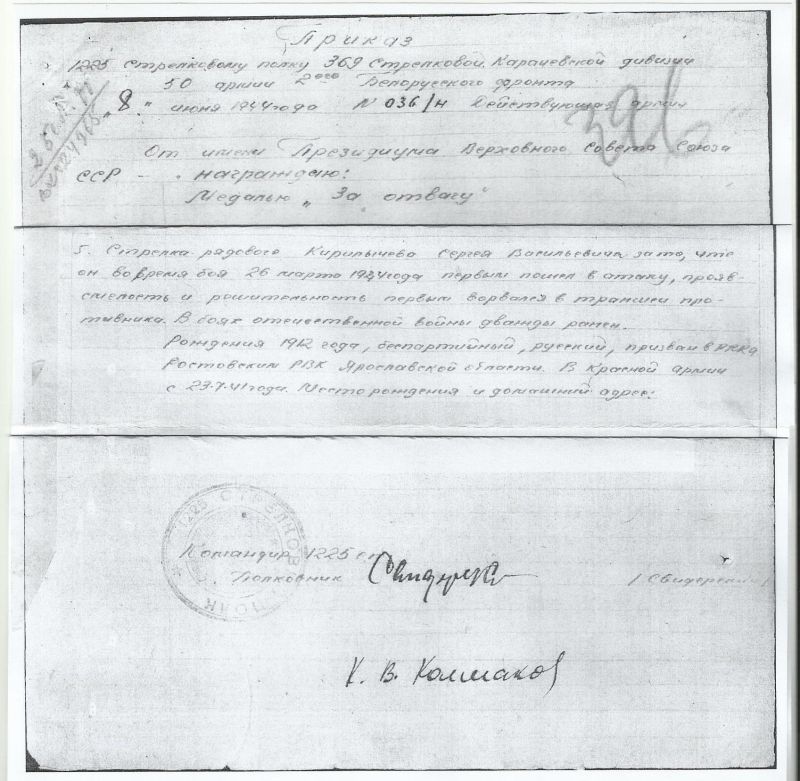 Приказ
1225 Стрелковому полку 369 Стрелковой Карачевской дивизии
50 армии 2ого Белорусского фронта
"8" июня 1944 года № 036/н Действующая армия
От имени Президиума Верховного Совета Союза
ССР - награждаю:
Медалью „За отвагу"
5. Стрелка рядового Кирилычева Сергея Васильевича за то, что
он во время боя 26 марта 1944 года первым пошел в атаку, прояв-
смелость и решительность первым ворвался в траншеи про-
тивника. В боях отечественной войны дважды ранен.
Рождения 1912 года, беспартийный, русский, призван в РККА
Ростовским РВК Ярославской области. В Красной армии
с 23.7.41 года. Место рождения и домашний адрес:
1225 СТРЕЛКОВ ПОЛК
Командир 1225 сп
Полковник /Свидерский/
К. В. Колмаков